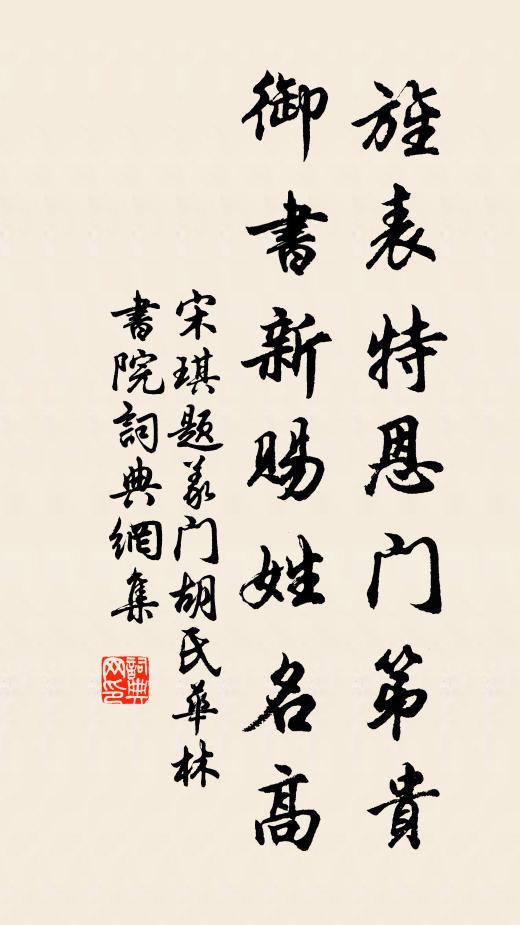 旌表特恩门第贵
御書新賜姓名高
宋琪题义门胡氏華林
書院詞典網集
詞典网印